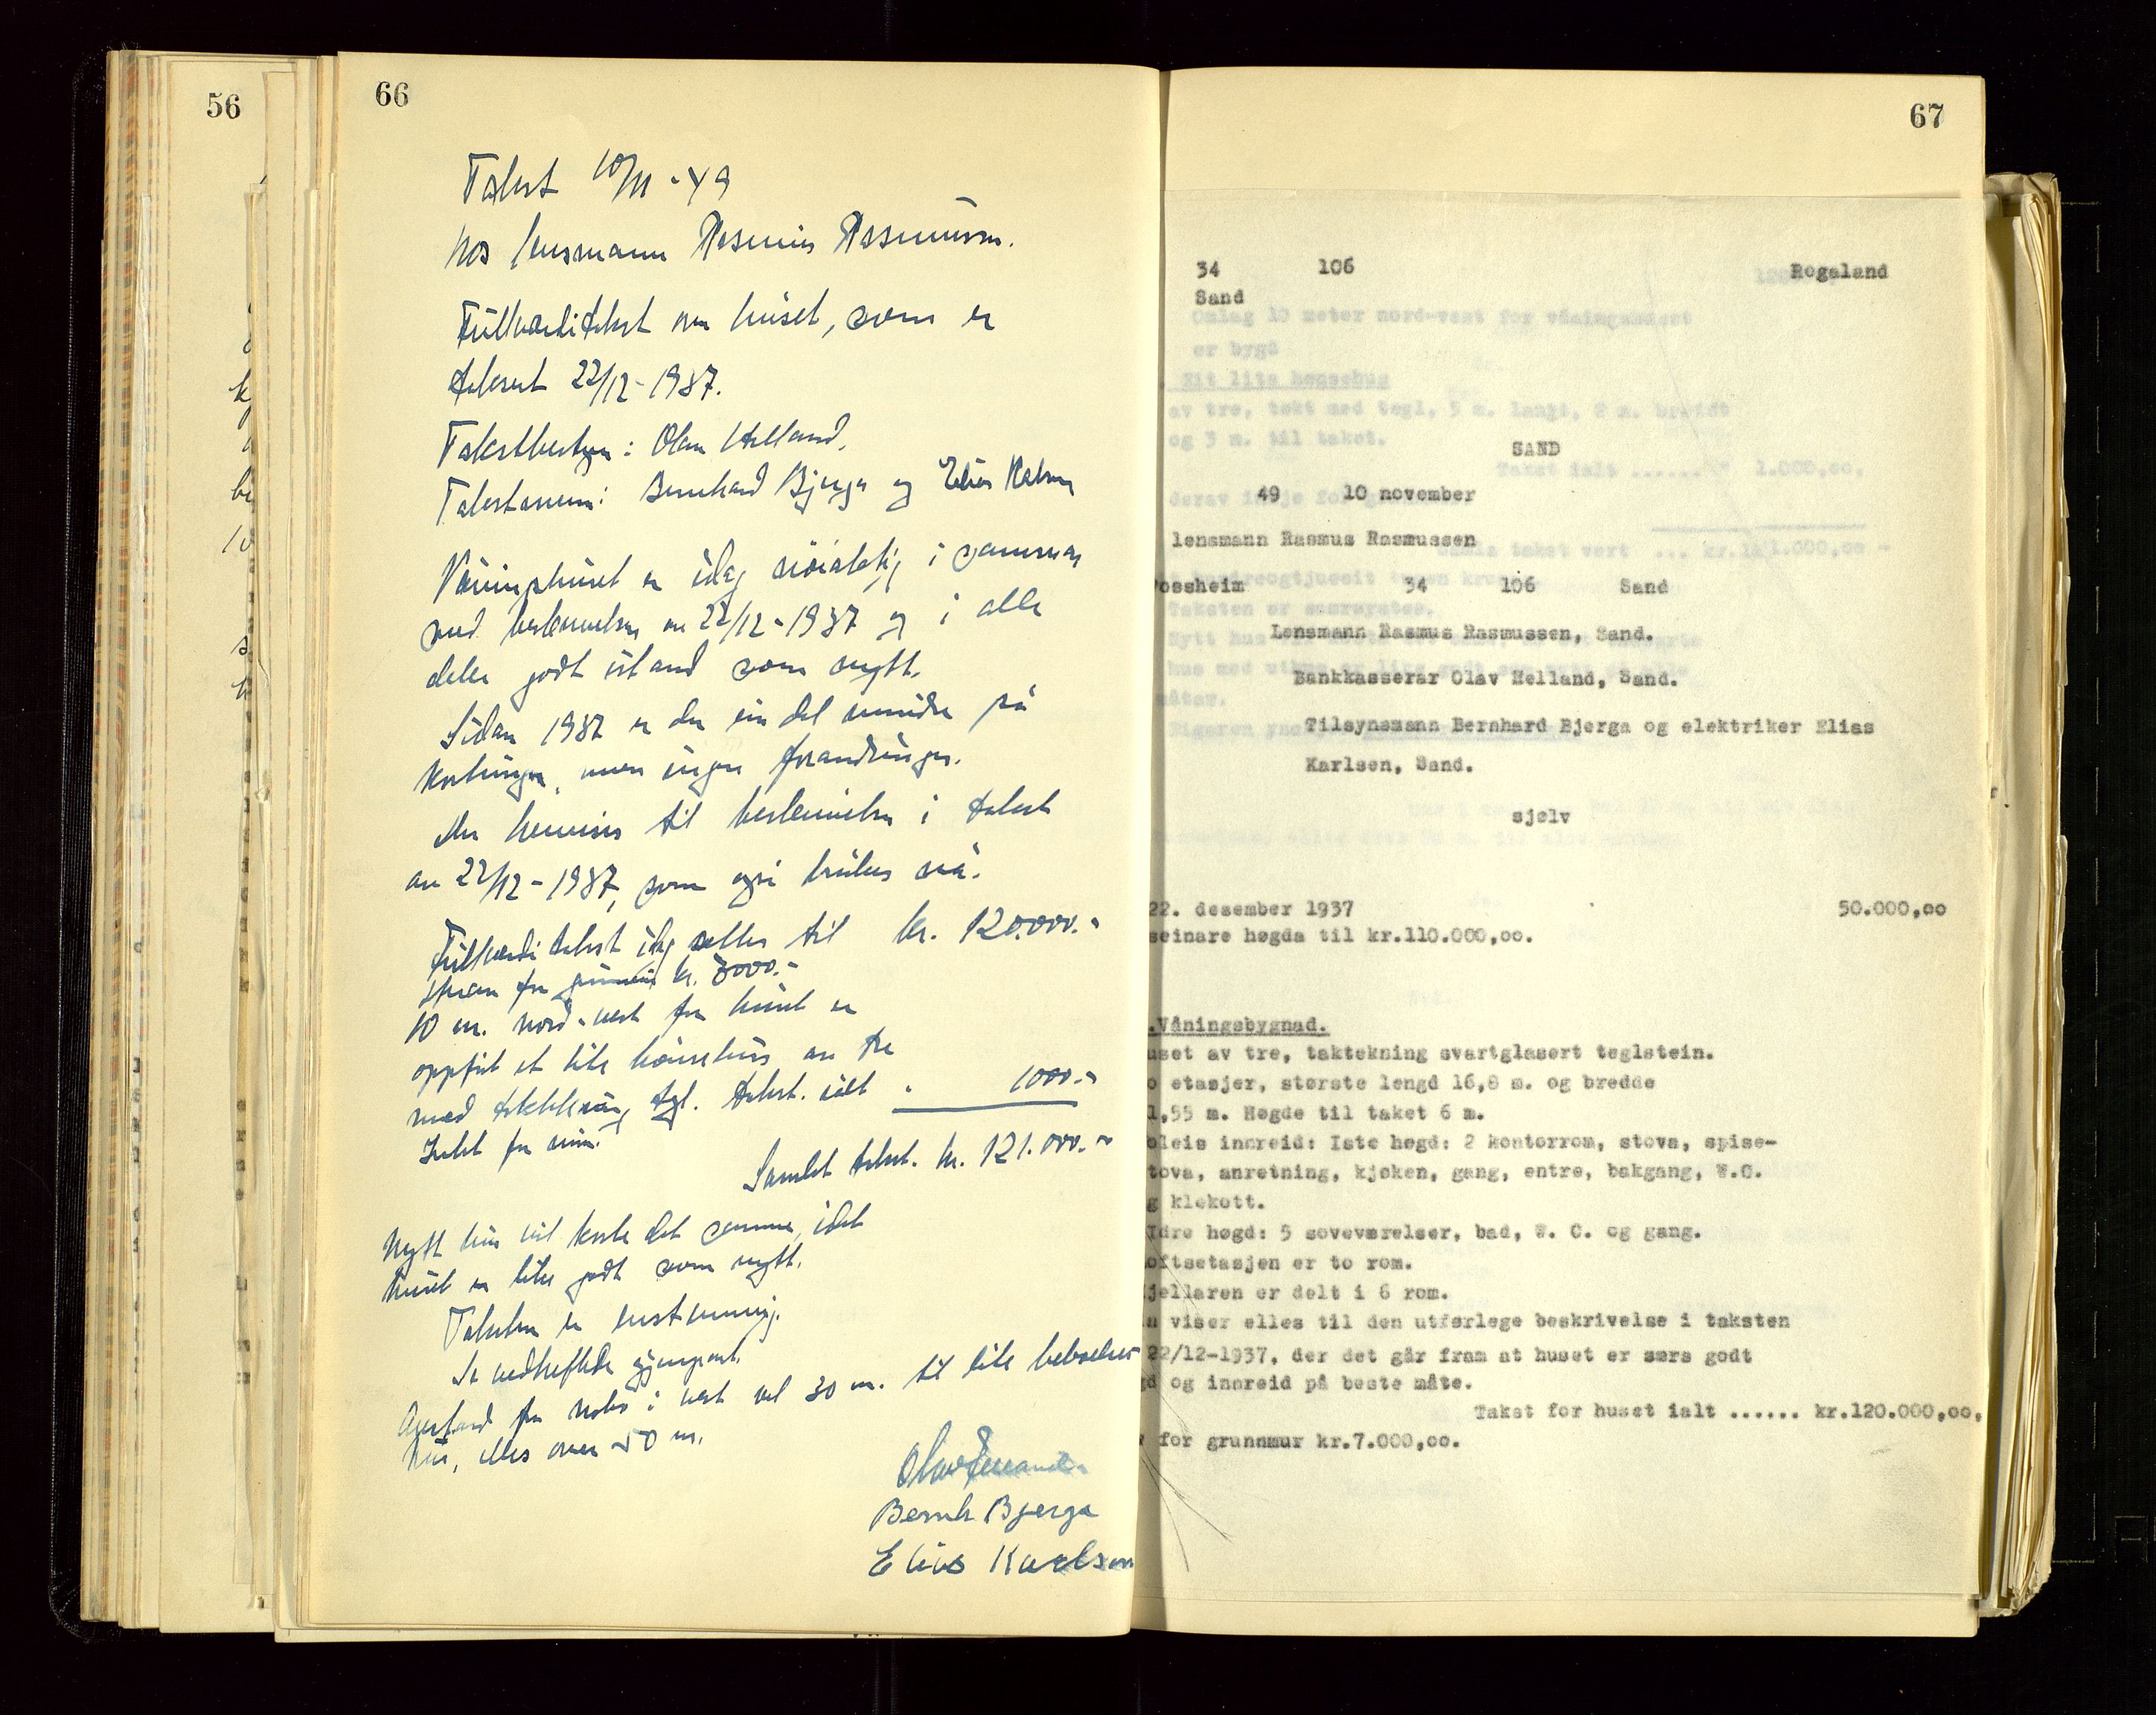 56
66
Takst 10/11-49
hos lensmann Rasmus Rasmussen.
Fullverditakst av huset, som er
taksert 22/12-1937.
Takstbestyrer: Olav Helland.
Takstmenn: Bernhard Bjerga og Elias Karlsen
Våningshuset er idag nøiaktig i sammsvar
med beskrivelsen av 22/12-1937 og i alle
deler godt istand som nytt.
Sidan 1937 er der ein del mindre på
men ingen forandringer.
Der henvises til beskrivelsen i takst
av 22/12-1937, som også brukes nå.
Fullverditakst idag settes til kr. 120.000.-
Herav for grunnmur kr. 7000.-
10 m. nord-vest for huset er
oppført et lite hønsehus av tre
med taktekning tegl. Takst. ialt " 1000.-
Intet for mur.
Samlet takst. kr. 121.000.-
Nytt hus vil koste det samme, idet
huset er like godt som nytt.
Taksten er enstemmig.
Se vedheftede gjenpart.
Avstand fra nabo i vest vel 30 m. til lite beboelses
hus, elles over 50 m.
Olav Helland
Bernh. Bjerga
Elias Karlsen
67
34 106 Rogaland
Sand
Omlag 10 meter nord-vest for våningshuset
er bygd
Eit lite hønsehus
av tre, tekt med tegl, 5 m. langt, 2 m. breidt
og 3 m. til taket.
SAND
Takst ialt ...... " 1.000,oo.
49 10 november
lensmann Rasmus Rasmussen
takst vert ... kr.121.000,oo -
ossheim 34 106 Sand
Taksten er samrøystes.
Lensmann Rasmus Rasmussen, Sand.
Bankkasserar Olav Helland, Sand.
Tilsynsmann Bernhard Bjerga og elektriker Elias
Karlsen, Sand.
sjølv
22. desember 1937 50.000,oo
seinare høgda til kr.110.000,oo.
.Våningsbygnad.
uset av tre, taktekning svartglasert teglstein.
o etasjer, største lengd 16,8 m. og bredde
1,55 m. Høgde til taket 6 m.
oleis innreid: Iste høgd: 2 kontorrom, stova, spise-
tova, anretning, kjøken, gang, entre, bakgang, W.C.
g klekott.
Idre høgd: 5 soveværelser, bad, W. C. og gang.
oftsetasjen er to rom.
jellaren er delt i 6 rom.
n viser elles til den utførlege beskrivelse i taksten
22/12-1937, der det går fram at huset er særs godt
gd og innreid på beste måte.
Takst for huset ialt ...... kr.120.000,oo.
v for grunnmur kr.7.000,oo.